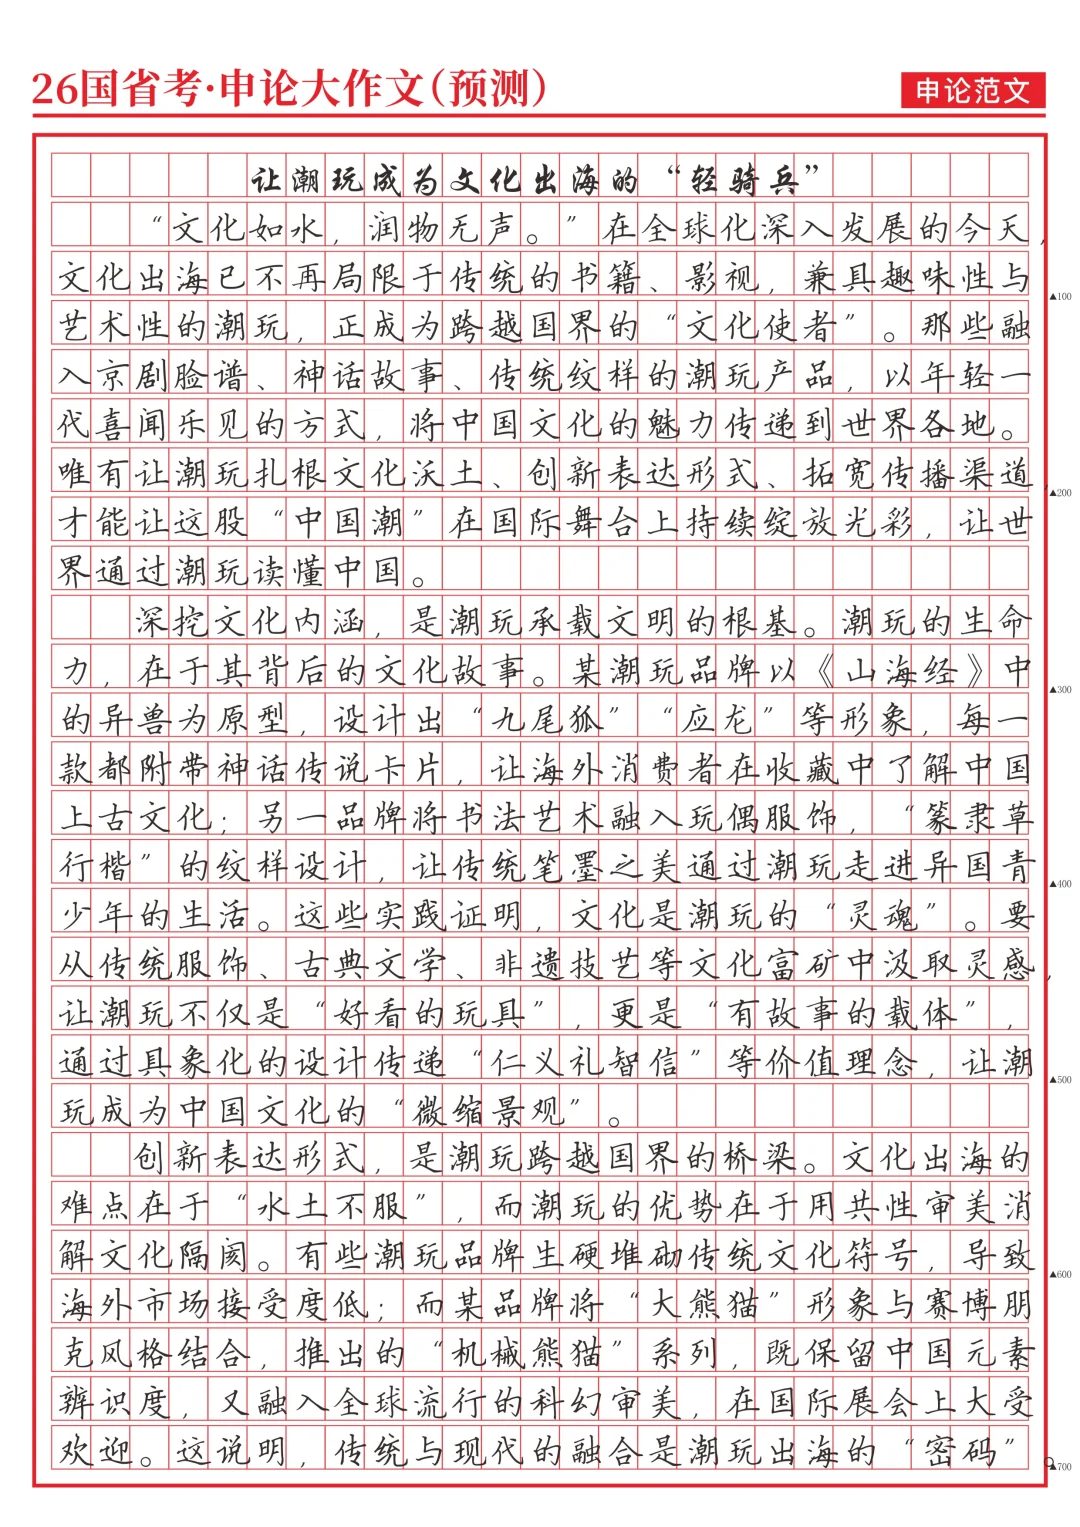 26国省考·申论大作文(预测)
申论范文
让潮玩成为文化出海的“轻骑兵”
“文化如水，润物无声。”在全球化深入发展的今天，
文化出海已不再局限于传统的书籍、影视，兼具趣味性与
▲100
艺术性的潮玩，正成为跨越国界的“文化使者”。那些融
入京剧脸谱、神话故事、传统纹样的潮玩产品，以年轻一
代喜闻乐见的方式，将中国文化的魅力传递到世界各地。
唯有让潮玩扎根文化沃土、创新表达形式、拓宽传播渠道，
▲200
才能让这股“中国潮”在国际舞台上持续绽放光彩，让世
界通过潮玩读懂中国。
深挖文化内涵，是潮玩承载文明的根基。潮玩的生命
力，在于其背后的文化故事。某潮玩品牌以《山海经》中
▲300
的异兽为原型，设计出“九尾狐”“应龙”等形象，每一
款都附带神话传说卡片，让海外消费者在收藏中了解中国
上古文化；另一品牌将书法艺术融入玩偶服饰，“篆隶草
行楷”的纹样设计，让传统笔墨之美通过潮玩走进异国青
▲400
少年的生活。这些实践证明，文化是潮玩的“灵魂”。要
从传统服饰、古典文学、非遗技艺等文化富矿中汲取灵感，
让潮玩不仅是“好看的玩具”，更是“有故事的载体”，
通过具象化的设计传递“仁义礼智信”等价值理念，让潮
▲500
玩成为中国文化的“微缩景观”。
创新表达形式，是潮玩跨越国界的桥梁。文化出海的
难点在于“水土不服”，而潮玩的优势在于用共性审美消
解文化隔阂。有些潮玩品牌生硬堆砌传统文化符号，导致
▲600
海外市场接受度低；而某品牌将“大熊猫”形象与赛博朋
克风格结合，推出的“机械熊猫”系列，既保留中国元素
辨识度，又融入全球流行的科幻审美，在国际展会上大受
欢迎。这说明，传统与现代的融合是潮玩出海的“密码”。
▲700